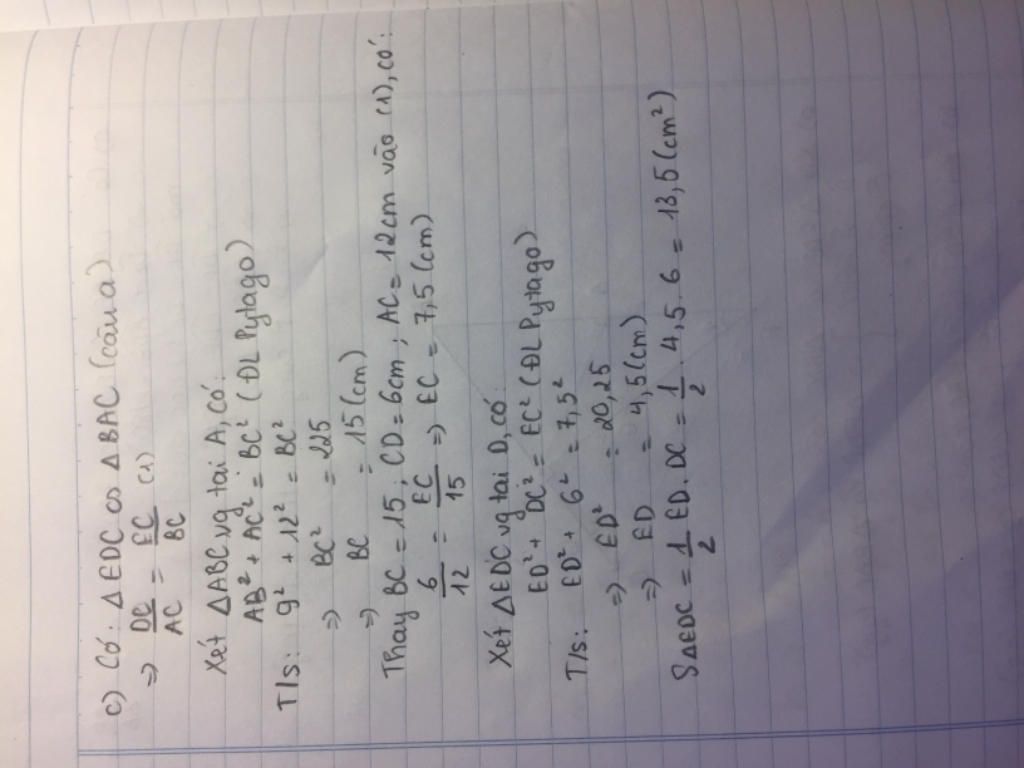 c) Có: ΔEDC ∽ ΔBAC (câu a)
=> DC/AC = EC/BC (1)
Xét ΔABC vg tại A, có:
AB² + AC² = BC² (ĐL Pytago)
T/s: 9² + 12² = BC²
=> BC² = 225
=> BC = 15 (cm)
Thay BC = 15; CD = 6cm; AC = 12cm vào (1), có:
6/12 = EC/15 => EC = 7,5 (cm)
Xét ΔEDC vg tại D, có:
ED² + DC² = EC² (ĐL Pytago)
T/s: ED² + 6² = 7,5²
=> ED² = 20,25
=> ED = 4,5 (cm)
SΔEDC = 1/2 ED. DC = 1/2 4,5. 6 = 13,5 (cm²)